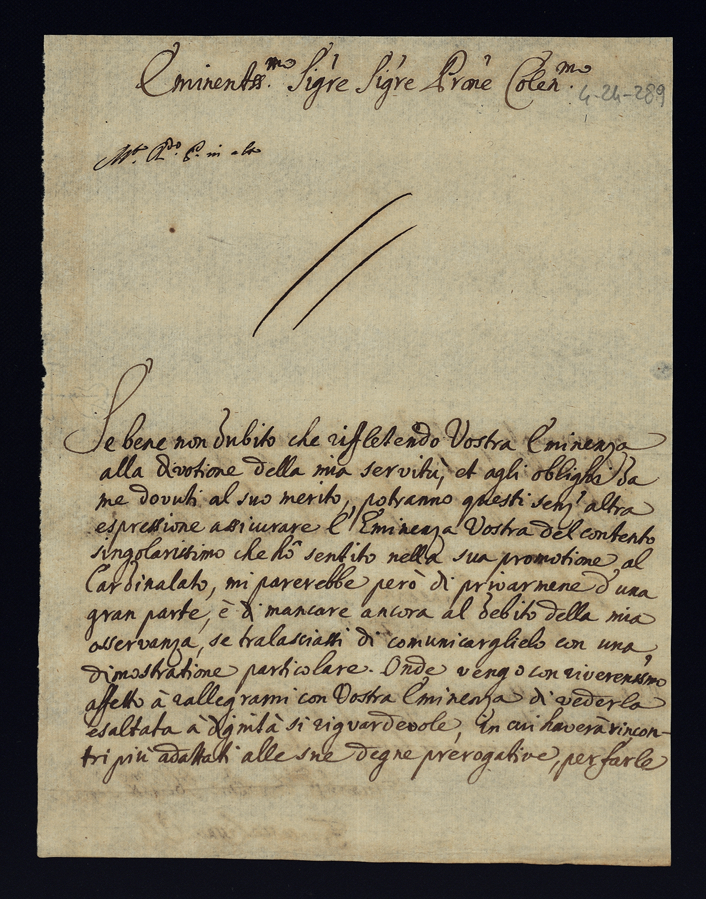 Eminentiss.mo Sig.re Sig.re Prone Colen.mo
4-24-289
Se bene non dubito che rifletendo Vostra Eminenza
alla divotione della mia servitù, et agli oblighi da
me dovuti al suo merito, potranno questi senz' altra
espressione assicurare l'Eminenza Vostra del contento
singolarissimo che hò sentito nella sua promotione al
Cardinalato, mi parerebbe però di privarmene d'una
gran parte, è di mancare ancora al debito della mia
osservanza, se tralasciassi di comunicarglielo con una
dimostratione particolare. Onde vengo con riverentissimo
affetto à rallegrarmi con Vostra Eminenza di vederla
esaltata à dignità si riguardevole, in cui haverà rincon-
tri più adattati alle sue degne prerogative, per farle